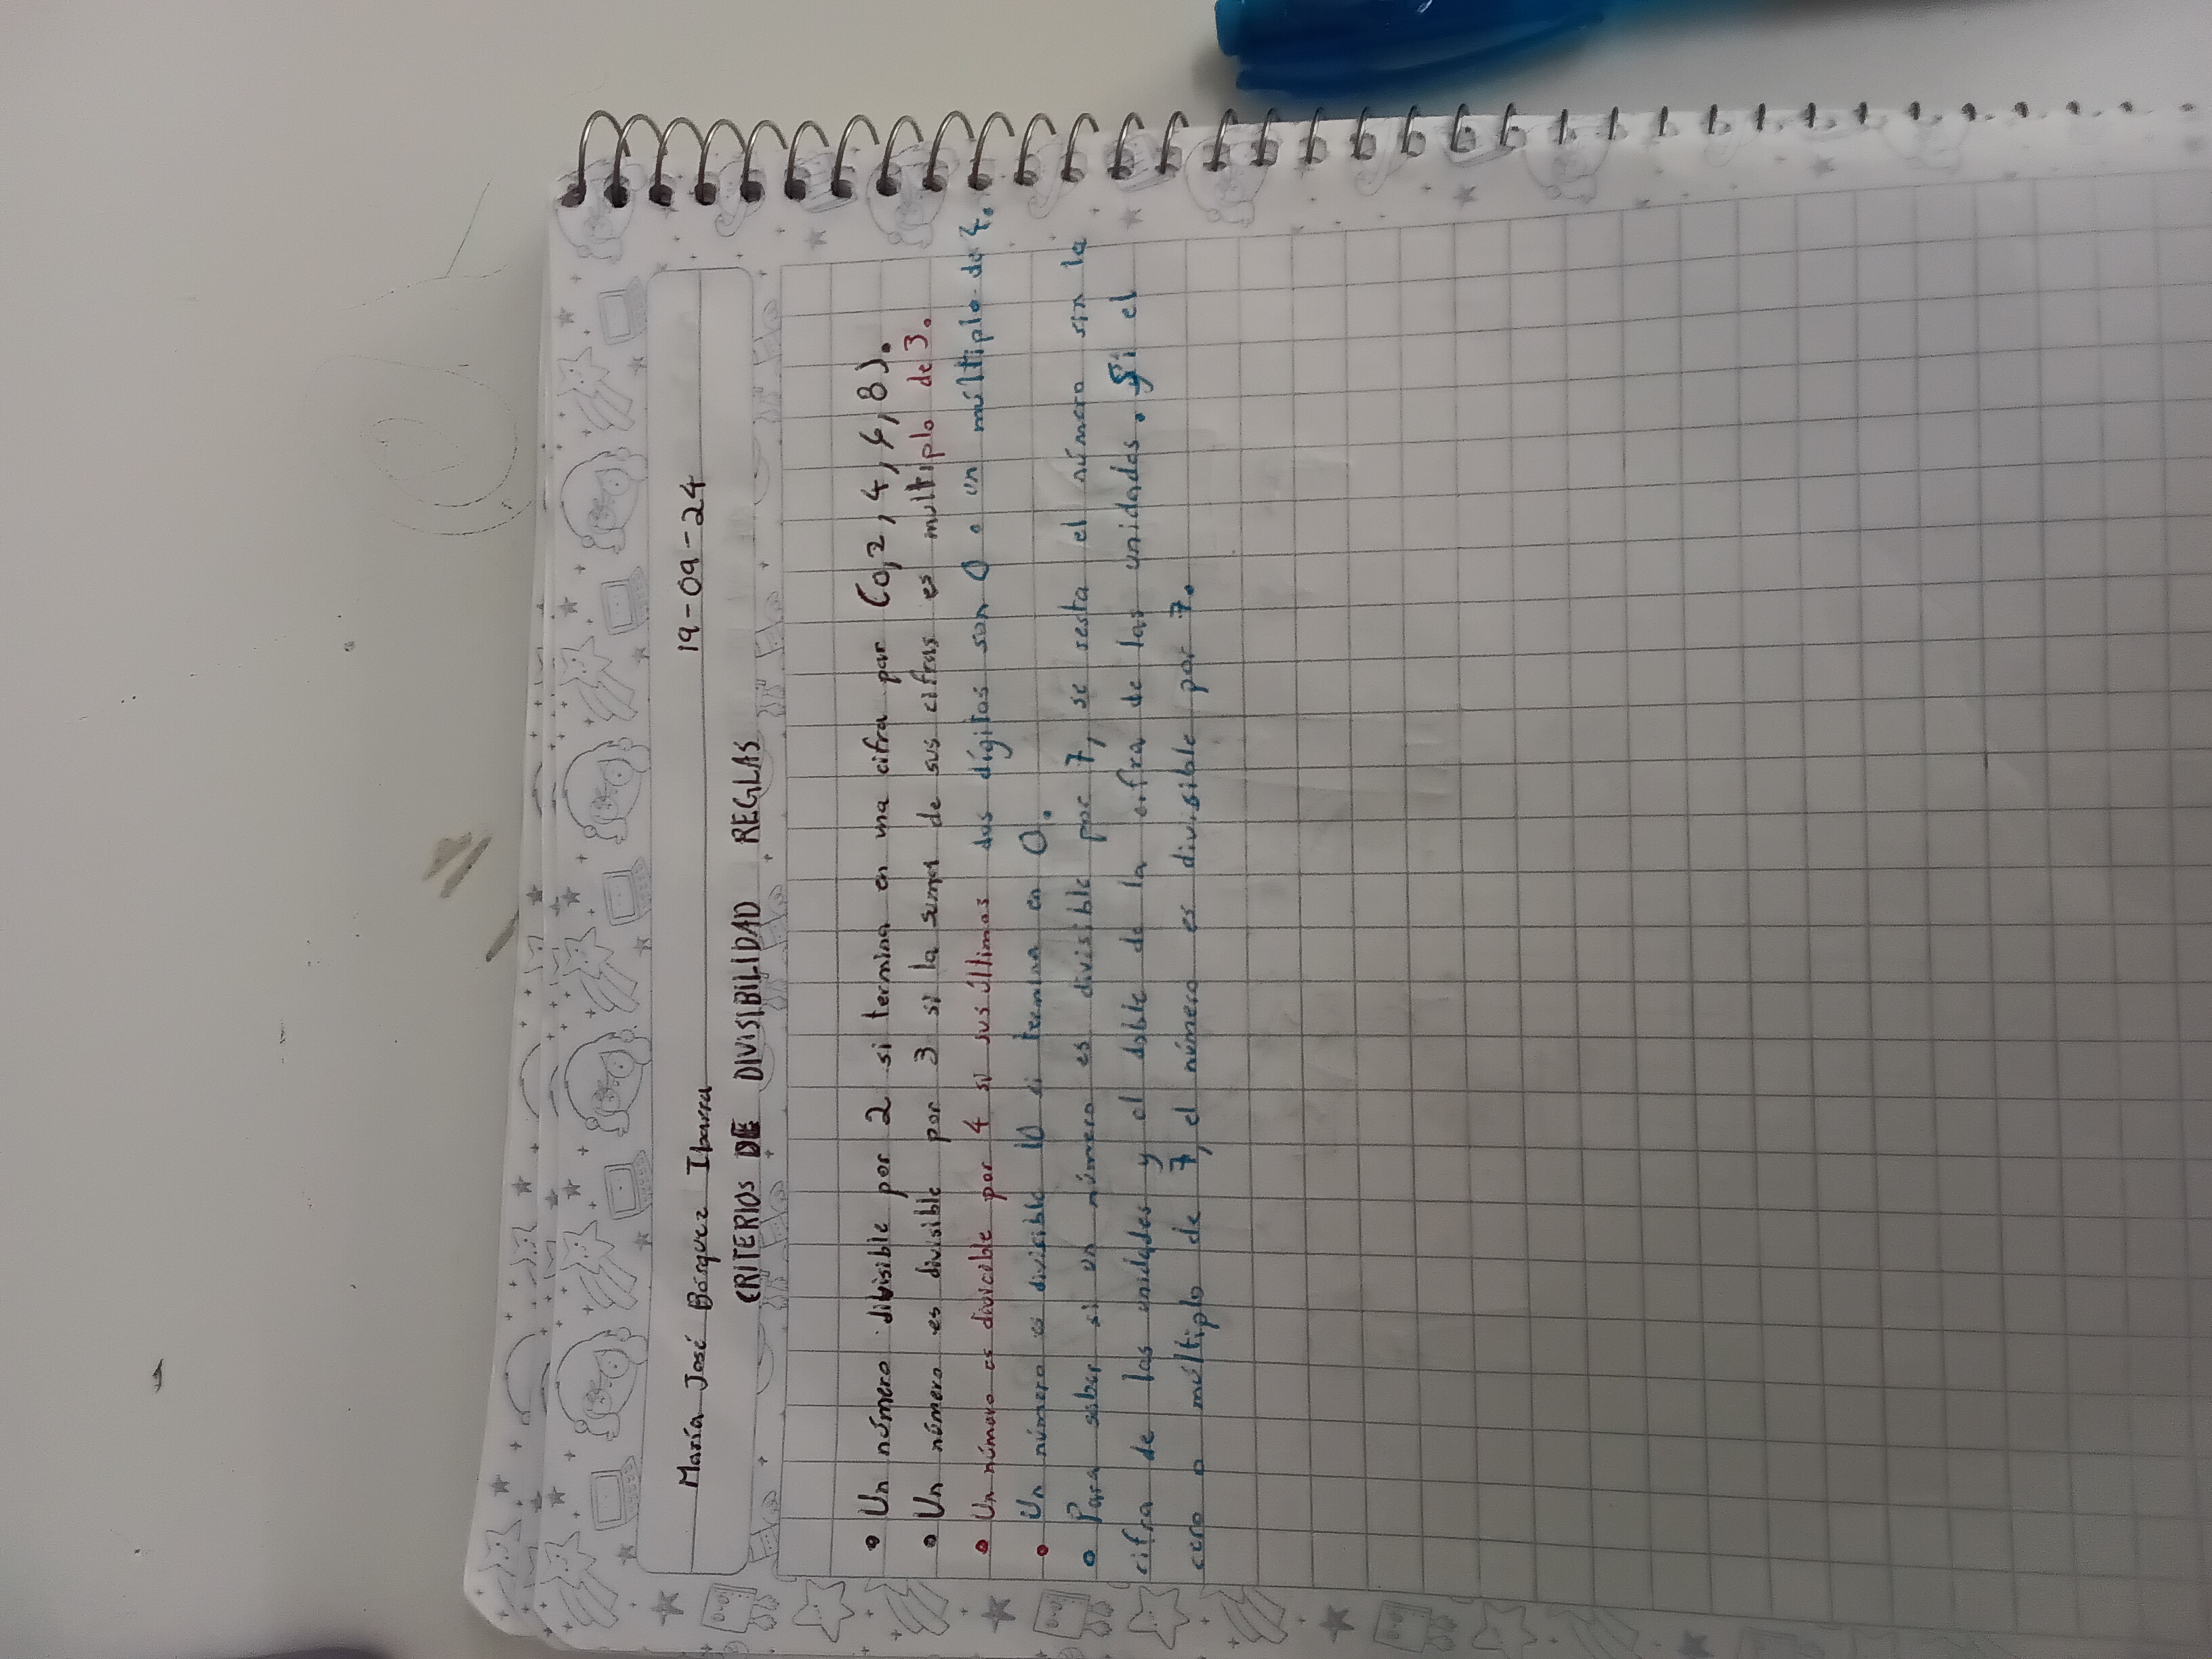 María José Bórquez Ibarra 19-09-24
CRITERIOS DE DIVISIBILIDAD REGLAS
• Un número divisible por 2 si termina en una cifra par (0,2,4,6,8).
• Un número es divisible por 3 si la suma de sus cifras es multiplo de 3.
• Un número es divicible por 4 si sus últimos dos dígitos son 0 o un múltiplo de 4.
• Un número es divisible 10 si termina en 0.
• Para saber si un número es divisible por 7, se resta el número sin la
cifra de las unidades y el doble de la cifra de las unidades. Si el
cero o múltiplo de 7, el número es divisible por 7.